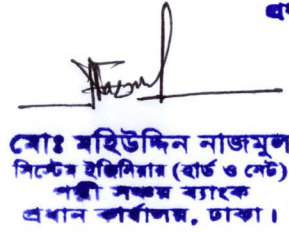 মোঃ মহিউদ্দিন নাজমুল
সিস্টেম ইঞ্জিনিয়ার (হার্ড ও নেট)
পল্লী সঞ্চয় ব্যাংক
প্রধান কার্যালয়, ঢাকা।